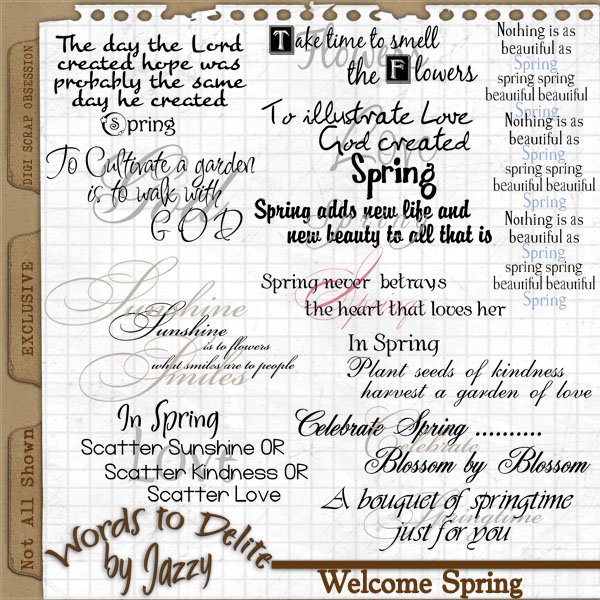 DIGI SCRAP OBSESSION
EXCLUSIVE
Not All Shown
The day the Lord
created hope was
probably the same
day he created
Spring
To Cultivate a garden
is to walk with
GOD
God
Sunshine
Sunshine
is to flowers
what smiles are to people
Smiles
In Spring
Scatter Sunshine OR
Scatter Kindness OR
Scatter Love
Love
Words to Delite
by Jazzy
Flowers
Take time to smell
the Flowers
To illustrate Love
God created
Love
Spring
Spring adds new life and
new beauty to all that is
Spring
Spring never betrays
the heart that loves her
In Spring
Plant seeds of kindness
harvest a garden of love
Celebrate Spring ..........
Celebrate
Blossom by Blossom
A bouquet of springtime
Springtime
just for you
Nothing is as
beautiful as
Spring
spring spring
beautiful beautiful
Spring
Nothing is as
beautiful as
Spring
spring spring
beautiful beautiful
Spring
Nothing is as
beautiful as
Spring
spring spring
beautiful beautiful
Spring
Welcome Spring